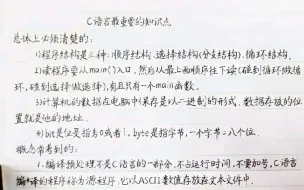 C语言最重要的知识点
总体上必须清楚的:
1)程序结构是三种:顺序结构、选择结构(分支结构)、循环结构。
2)读程序都从main()入口,然后从最上面顺序往下读(碰到循环做循
环,碰到选择做选择),有且只有一个main函数。
3)计算机的数据在电脑中保存是以二进制的形式,数据存放的位
置就是他的地址。
4)bit是位是指为0或者1,byte是指字节,一个字节=八个位.
概念常考到的:
1、编译预处理不是C语言的一部分,不占运行时间,不要加分号。C语言
编译的程序称为源程序,它以ASCII数值存放在文本文件中.